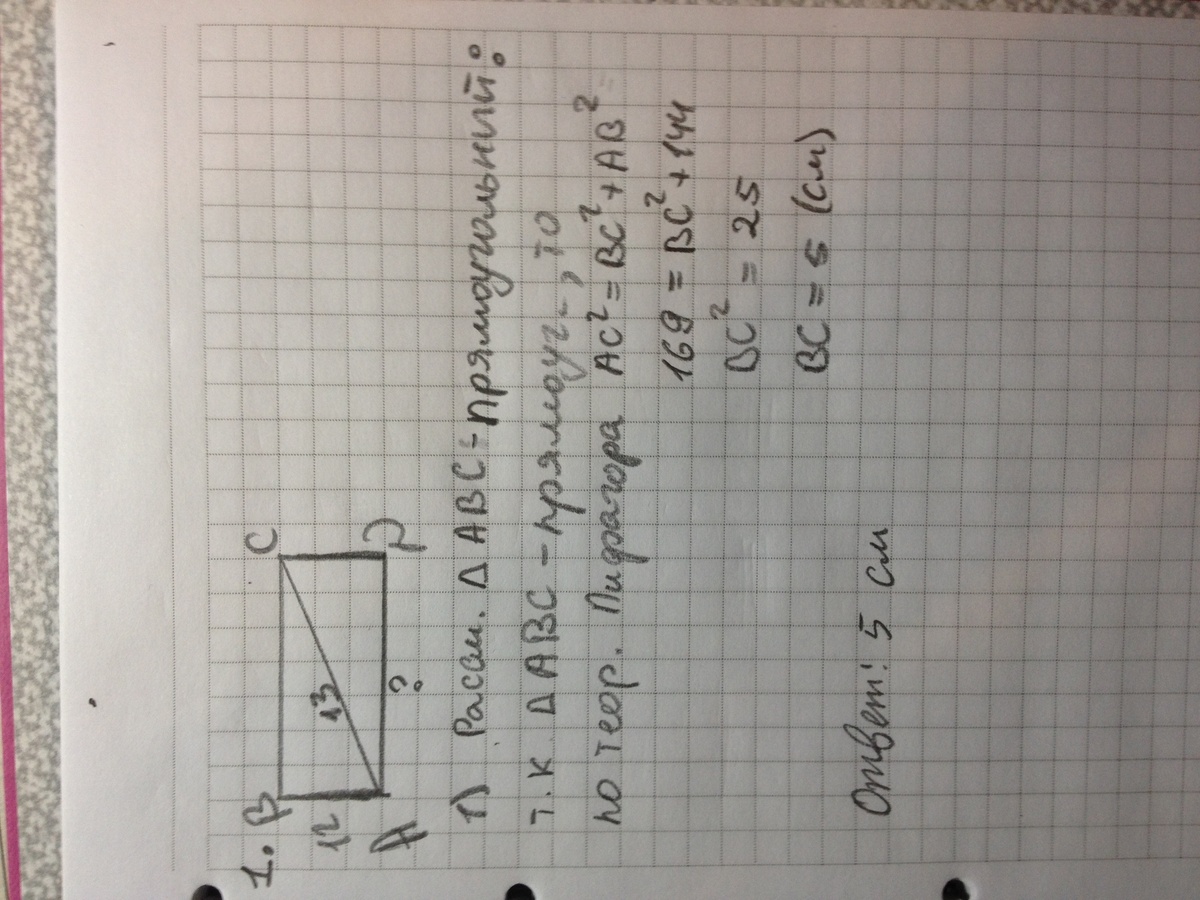 1. B C
12 13
A ? D
1) Рассм. Δ ABC - прямоугольний:
т.к. Δ ABC - прямоуг., то
по теор. Пифагора AC² = BC² + AB²
169 = BC² + 144
BC² = 25
BC = 5 (см)
Ответ: 5 см